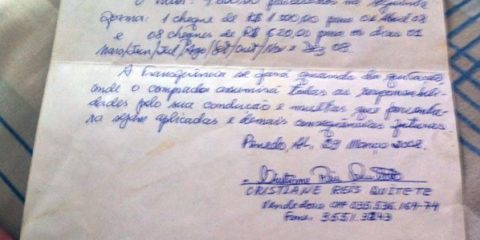 forma: 1 cheque de R$ 1.000,00 para 01 Abril 08
e 08 cheques de R$ 620,00 para os dias 01
Maio/Jun/Jul/Ago/Set/Out/Nov e Dez 08.
A transferência se dará quando da quitação,
onde o comprador assumirá todas as responsabili-
dades pelo sua condução e multas que porventu-
ra sejam aplicadas e demais consequências futuras.
Penedo, 29 Março 2008.
CRISTIANE REIS QUITETE
Vendedora CPF 035.536.167-74
Fone: 3.5511.3243